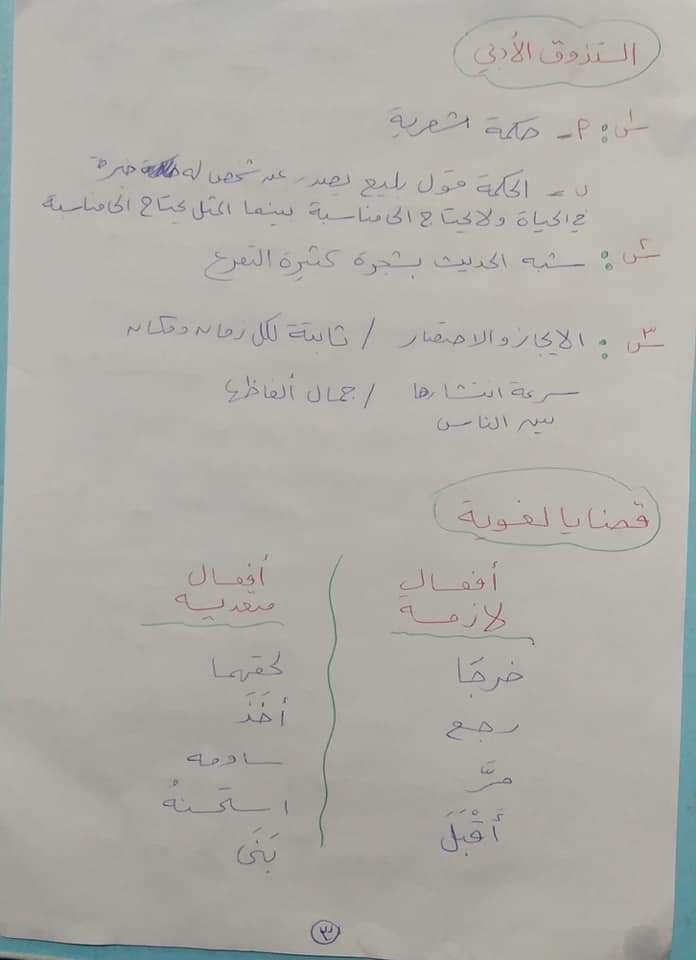 التذوق الأدبي
س١: أ- حكمة شعرية
ب- الحكمة قول بليغ يصدر عن شخص له خبرة
في الحياة ولا يحتاج الى مناسبة بينما المثل يحتاج الى مناسبة
س٢: شبه الحديث بشجرة كثيرة التفرع
س٣: الايجاز والاختصار / ثابتة لكل زمان ومكان
سرعة انتشارها / جمال ألفاظها
بين الناس
قضايا لغوية
أفعال لازمة
خرجَا
رجع
مرَّ
أَقْبَلَ
أفعال متعدية
لحقهما
أخَذَ
ساومه
استحسنهُ
بَنَى
٣